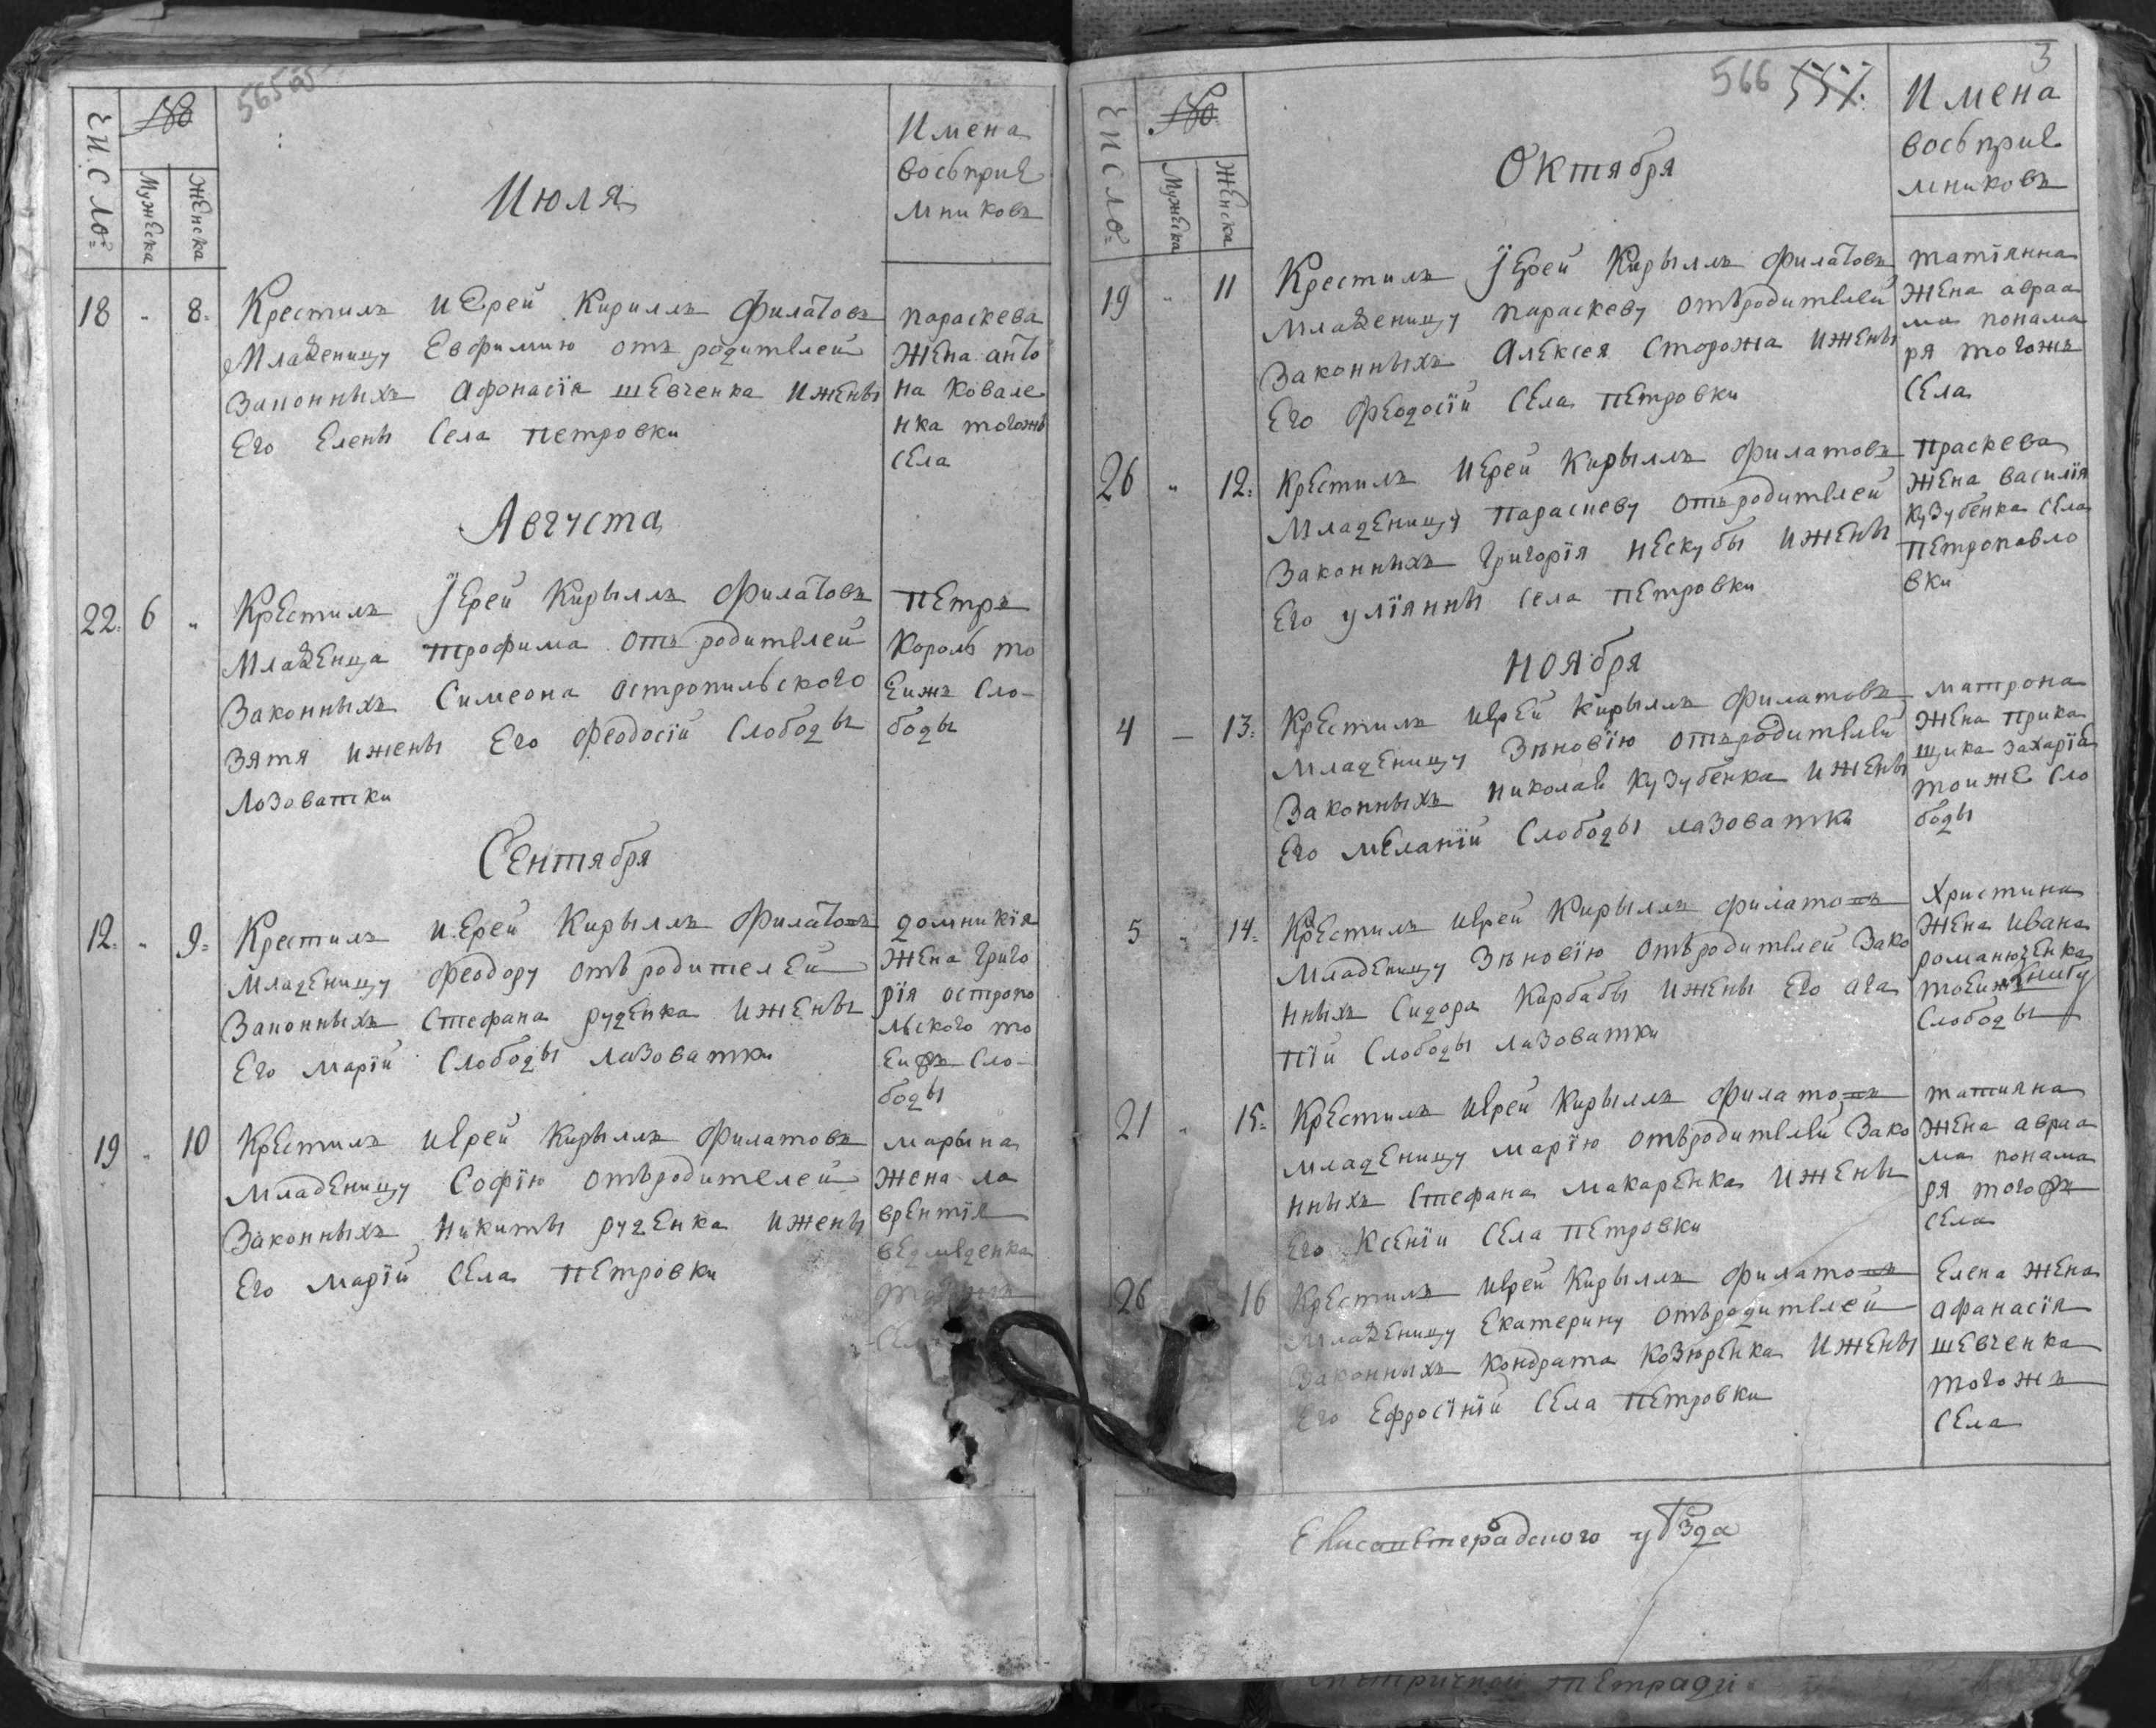 565 об
ЧИСЛО
№
Мужеска
Женска
Июля
Имена
восьприе
мниковъ
18 " 8. Крестилъ иерей Кириллъ Филатовъ
Младеницу Евфимию отъ родителей
Законныхъ Афонасїя шевченка ижены
Его Елены Села петровки
параскева
жена анто
на Ковале
нка тогожъ
села
Августа
22. 6 " Крестилъ Іерей Кирыллъ Филатовъ
Младенца трофима отъ родителей
Законныхъ Симеона остропильского
зятя ижены Его Феодосїи Слободы
Лозоватки
петръ
Король то
еижъ Сло-
боды
Сентября
12. " 9. Крестилъ иерей Кирыллъ Филатовъ
Младеницу Феодору отъ родителей
Законныхъ Стефана руденка ижены
Его марїи Слободы лазоватки
домникїя
жена Григо
рїя остропо
льского то
еижъ Сло-
боды
19 " 10 Крестилъ иерей Кирыллъ Филатовъ
Младеницу Софїю отъродителей
Законныхъ никиты руденка ижены
Его Марїи села петровки
марына
жена ла
врентїя
ведмеденка
тогожъ
села
566 557.
3
ЧИСЛО
№
Мужеска
Женска
Октября
Имена
восьприе
мниковъ
19 " 11 Крестилъ Іерей Кирыллъ Филатовъ
Младеницу параскеву отъродителей
Законныхъ Алексея Сторожа ижены
Его Феодосїи села петровки
татїянна
жена авраа
ма понама
ря тогожъ
села
26 " 12. Крестилъ иерей Кирыллъ Филатовъ
Младеницу параскеву отъродителей
Законныхъ Григорїя нескубы ижены
Его улїянны села петровки
праскева
жена василїя
кузубенка села
петропавло
вки
ноября
4 — 13. Крестилъ иерей Кирыллъ Филатовъ
Младеницу Зѣновїю отъродителей
Законныхъ николая кузубенка ижены
Его меланїи Слободы лазоватки
матрона
жена прика
щика захарїя
тоиже Сло
боды
5 " 14. Крестилъ иерей Кирыллъ Филатовъ
Младеницу Зѣновїю отъродителей Зако
нныхъ Сидора Карбабы ижены Его ага
пїи Слободы лазоватки
Христина
жена ивана
романюченка
тоеижъ
Слободы
21 " 15. Крестилъ иерей Кирыллъ Филатовъ
младеницу марїю отъродителей Зако
нныхъ Стефана макаренка ижены
Его Ксенїи села петровки
татияна
жена авраа
ма понама
ря тогожъ
села
26 16 Крестилъ иерей Кирыллъ Филатовъ
Младеницу Екатерину отъродителей
Законныхъ Кондрата Козюренка ижены
Его Ефросїнїи села петровки
Елена жена
афанасїя
шевченка
тогожъ
села
Елисаветградского уѣзда
тетради